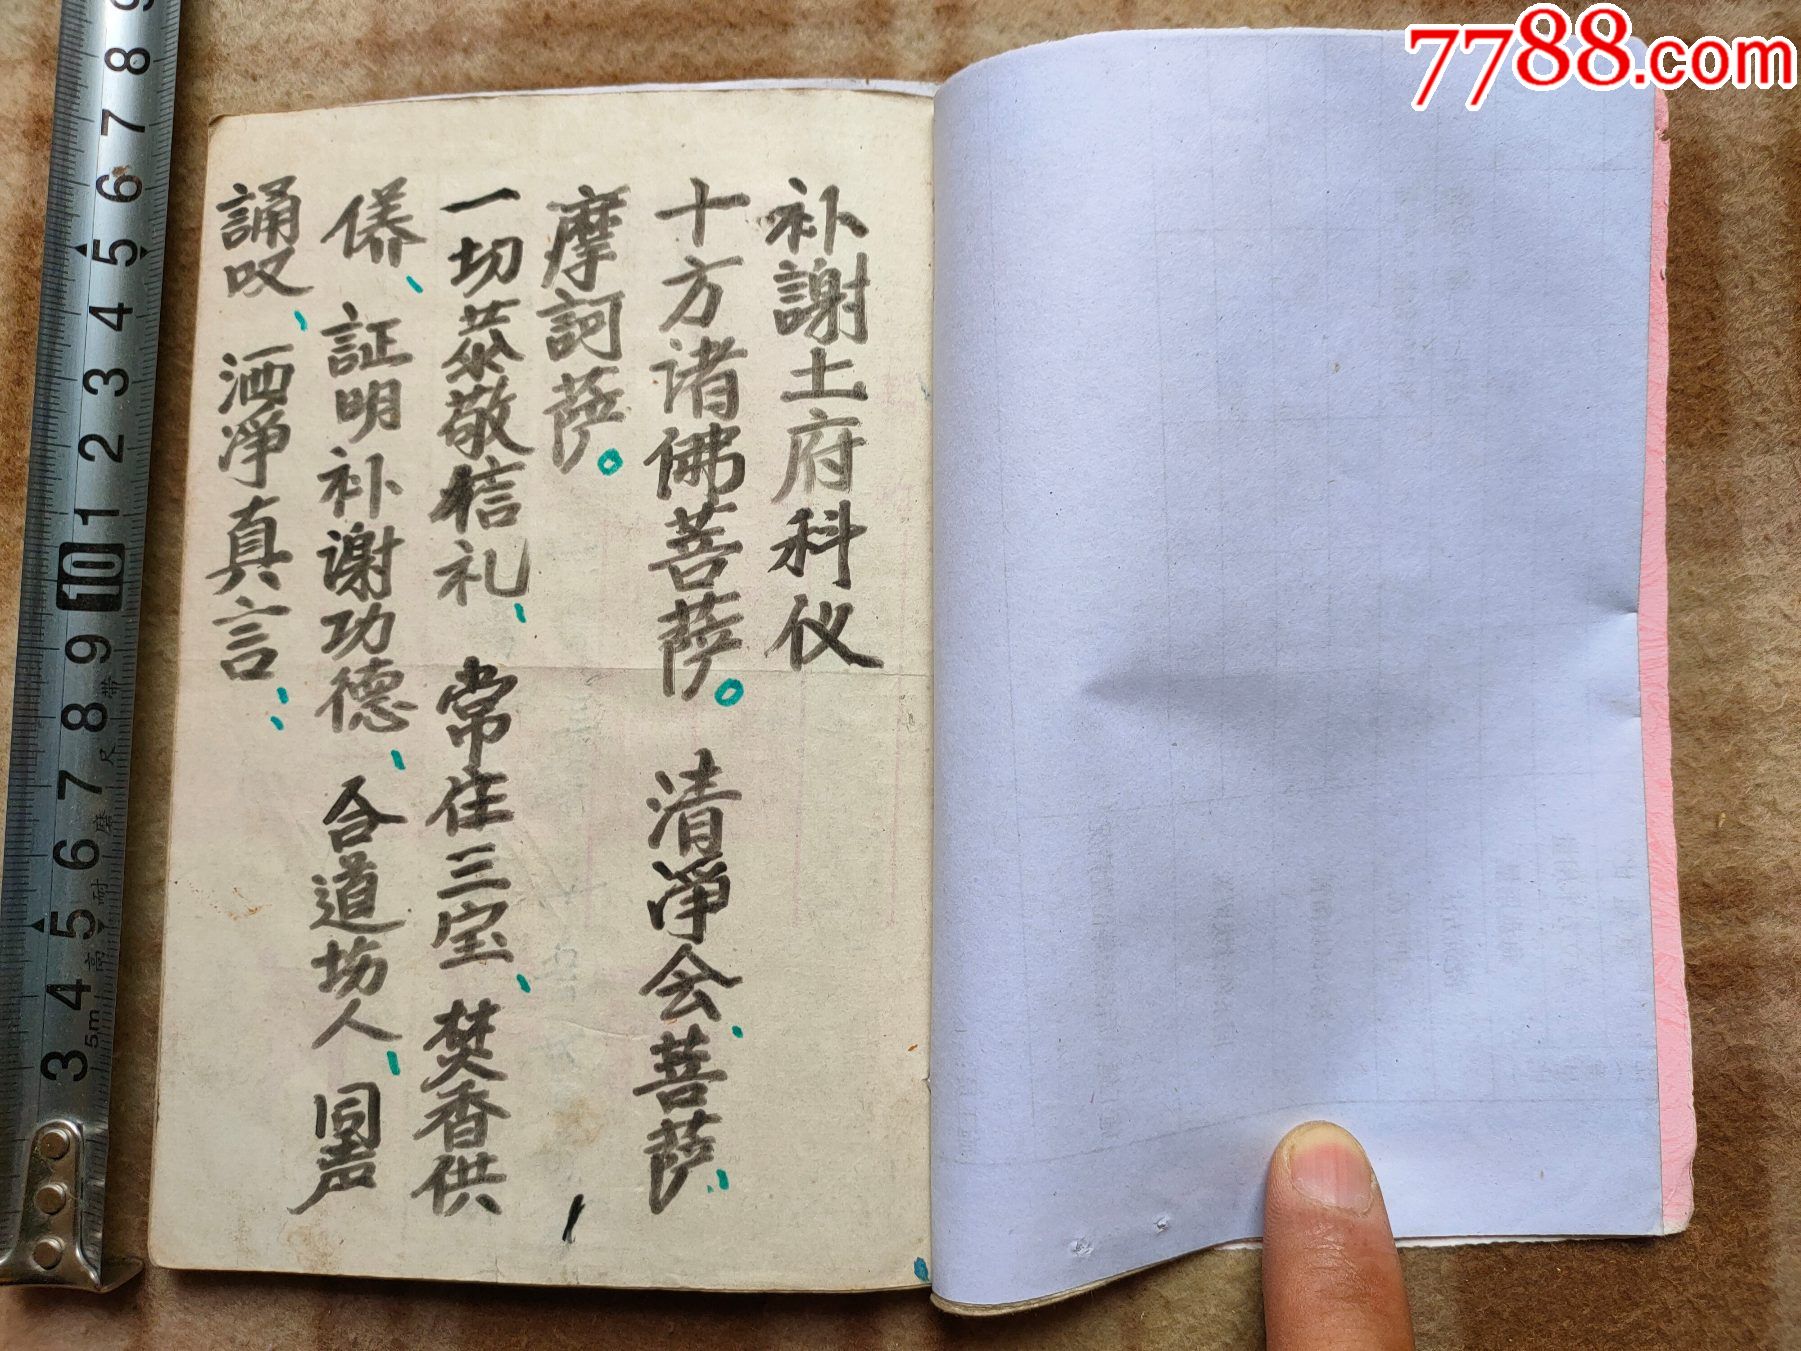 补謝土府科仪
十方诸佛菩萨。清淨会、菩萨、
摩訶萨。
一切恭敬信礼、常住三宝、焚香供
养、証明补谢功德、合道场人、同声
誦叹、洒淨真言、:
1
7788.com
9
8
7
6
5
4
3
2
1
10
9
8
7
6
5
4
3
5m
带
尺
磨
耐
高